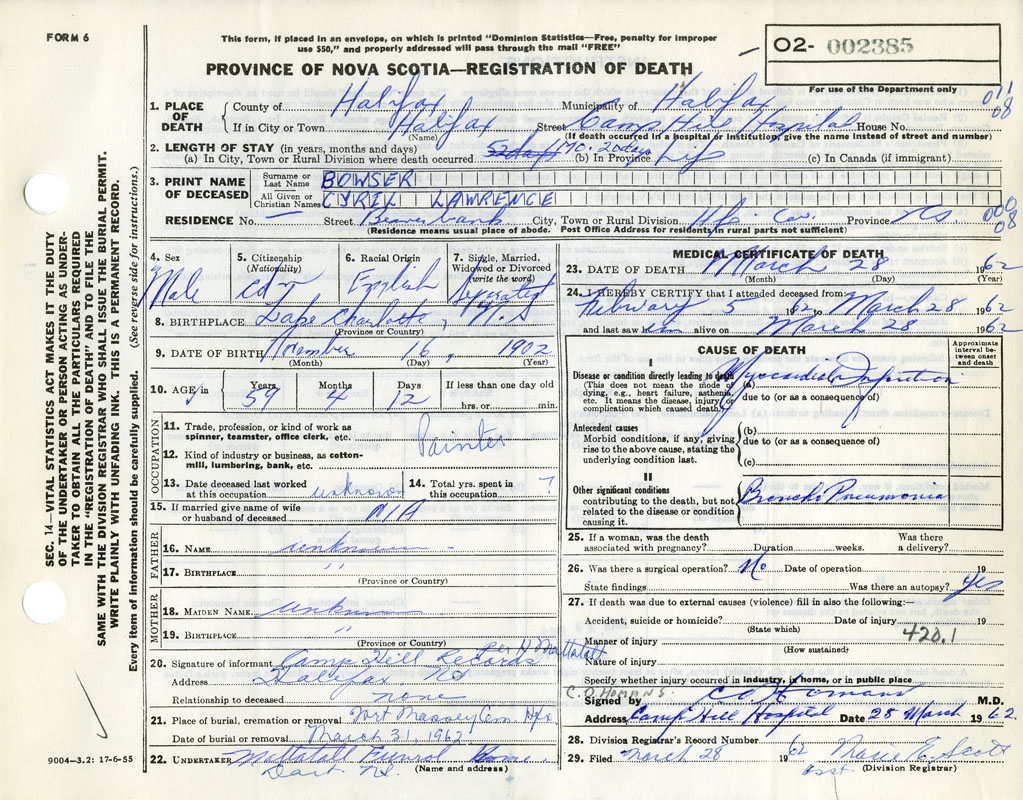 FORM 6
This form, if placed in an envelope, on which is printed "Dominion Statistics—Free, penalty for improper
use $50," and properly addressed will pass through the mail "FREE"
O2- 002385
PROVINCE OF NOVA SCOTIA—REGISTRATION OF DEATH
For use of the Department only
1. PLACE OF DEATH { County of Halifax Municipality of Halifax
If in City or Town Halifax Street Camp Hill Hospital House No.
(Name) (If death occurred in a hospital or institution, give name instead of street and number)
2. LENGTH OF STAY (in years, months and days)
(a) In City, Town or Rural Division where death occurred 20 days (b) In Province Life (c) In Canada (if immigrant)
3. PRINT NAME OF DECEASED
Surname or Last Name BOWSER
All Given or Christian Names CYRIL LAWRENCE
RESIDENCE No. — Street Beaverbank City, Town or Rural Division Hfx. Co. Province NS
(Residence means usual place of abode. Post Office Address for residents in rural parts not sufficient)
011
08
000
08
SEC. 14—VITAL STATISTICS ACT MAKES IT THE DUTY
OF THE UNDERTAKER OR PERSON ACTING AS UNDER-
TAKER TO OBTAIN ALL THE PARTICULARS REQUIRED
IN THE "REGISTRATION OF DEATH" AND TO FILE THE
SAME WITH THE DIVISION REGISTRAR WHO SHALL ISSUE THE BURIAL PERMIT.
WRITE PLAINLY WITH UNFADING INK. THIS IS A PERMANENT RECORD.
Every item of information should be carefully supplied. (See reverse side for instructions.)
4. Sex Male
5. Citizenship (Nationality) Cdn
6. Racial Origin English
7. Single, Married, Widowed or Divorced (write the word) Separated
8. BIRTHPLACE Cape Charlotte, N.S
(Province or Country)
9. DATE OF BIRTH November 16, 1902
(Month) (Day) (Year)
10. AGE Years 59 Months 4 Days 12 If less than one day old
hrs. or min.
OCCUPATION
11. Trade, profession, or kind of work as
spinner, teamster, office clerk, etc. Painter
12. Kind of industry or business, as cotton-
mill, lumbering, bank, etc.
13. Date deceased last worked
at this occupation unknown
14. Total yrs. spent in
this occupation ?
15. If married give name of wife
or husband of deceased N/A
FATHER
16. NAME unknown
17. BIRTHPLACE "
(Province or Country)
MOTHER
18. MAIDEN NAME unknown
19. BIRTHPLACE "
(Province or Country)
20. Signature of informant Camp Hill Records per H Mattatall
Address Halifax, NS
Relationship to deceased none
21. Place of burial, cremation or removal Fort Massey Cem. Hfx
Date of burial or removal March 31, 1962
22. UNDERTAKER Mattatall Funeral Home.
Dart. NS. (Name and address)
9004—3.2: 17-6-55
MEDICAL CERTIFICATE OF DEATH
23. DATE OF DEATH March 28 1962
(Month) (Day) (Year)
24. I HEREBY CERTIFY that I attended deceased from:
February 5 1962 to March 28 1962
and last saw him alive on March 28 1962
CAUSE OF DEATH
Approximate interval between onset and death
I
Disease or condition directly leading to death
(This does not mean the mode of
dying, e.g., heart failure, asthenia,
etc. It means the disease, injury or
complication which caused death.)
(a) Myocardial Infarction
due to (or as a consequence of)
Antecedent causes
Morbid conditions, if any, giving
rise to the above cause, stating the
underlying condition last.
(b)
due to (or as a consequence of)
(c)
II
Other significant conditions
contributing to the death, but not
related to the disease or condition
causing it.
Broncho Pneumonia
25. If a woman, was the death
associated with pregnancy? Duration weeks. Was there
a delivery?
26. Was there a surgical operation? No Date of operation 19
State findings Was there an autopsy? Yes
27. If death was due to external causes (violence) fill in also the following:—
Accident, suicide or homicide? Date of injury 19
(State which)
420.1
Manner of injury
(How sustained)
Nature of injury
Specify whether injury occurred in industry, in home, or in public place
C.O HOMANS.
Signed by C O Homans M.D.
Address Camp Hill Hospital Date 28 March 1962.
28. Division Registrar's Record Number
29. Filed March 28 1962 Marie E. Scott
asst (Division Registrar)